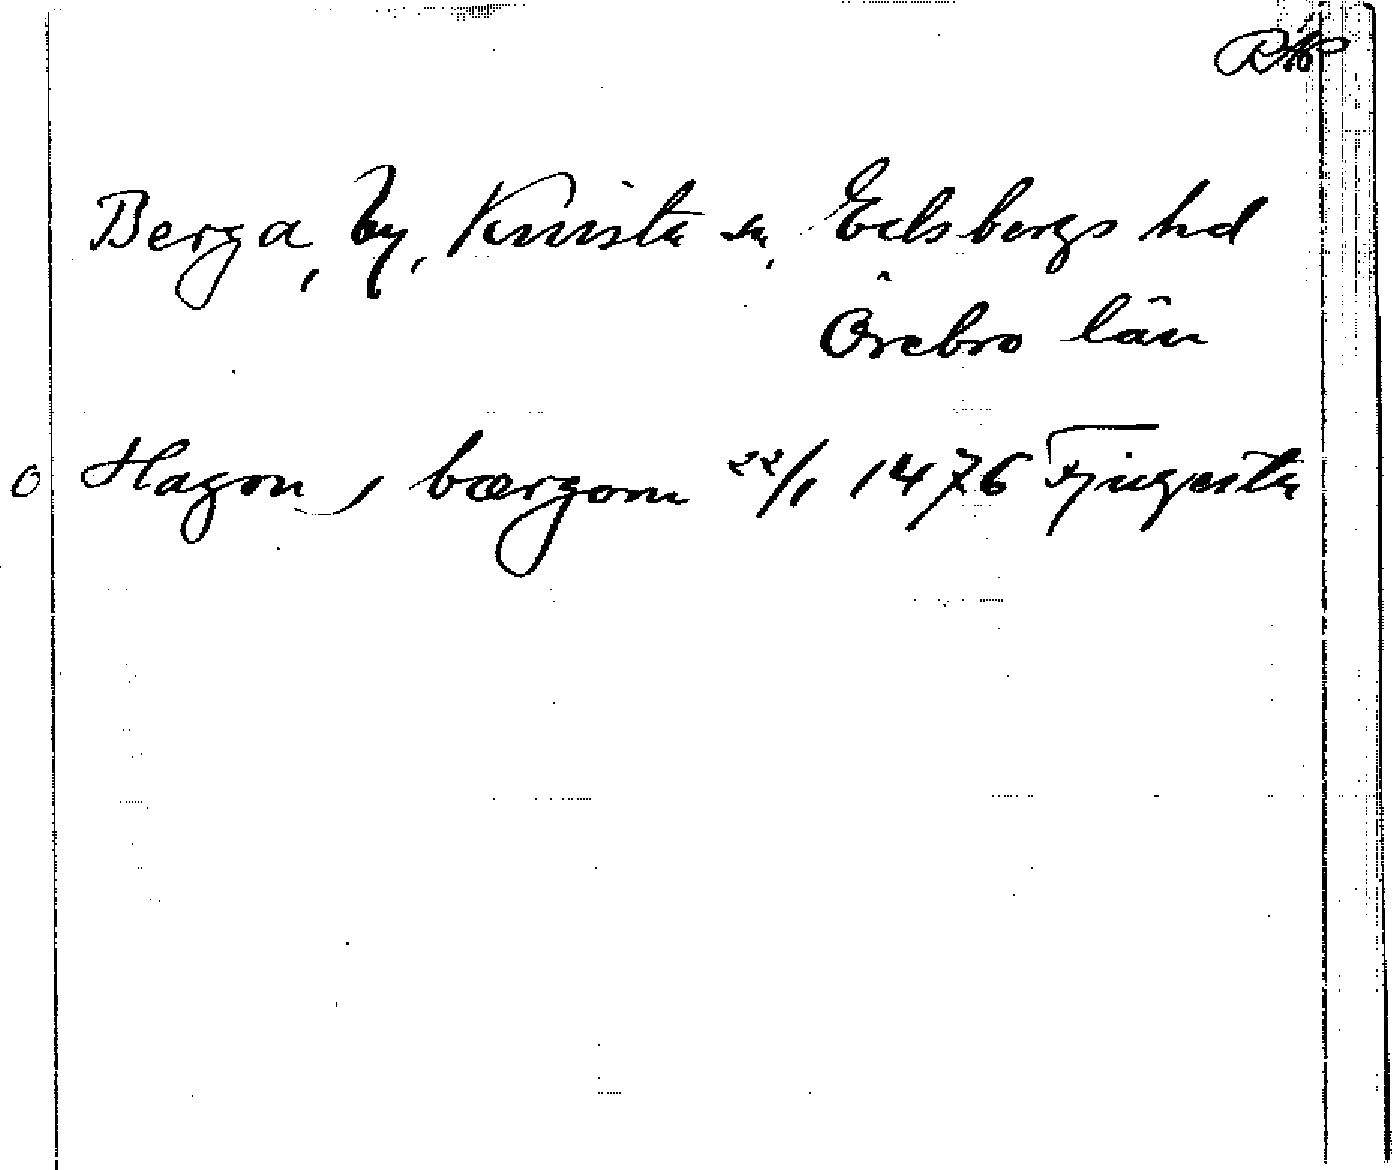 RAp
Berga, by, Knista sn, Edsbergs hd
Örebro län
o Hagon j bærgom 22/1 1476 Fjugesta